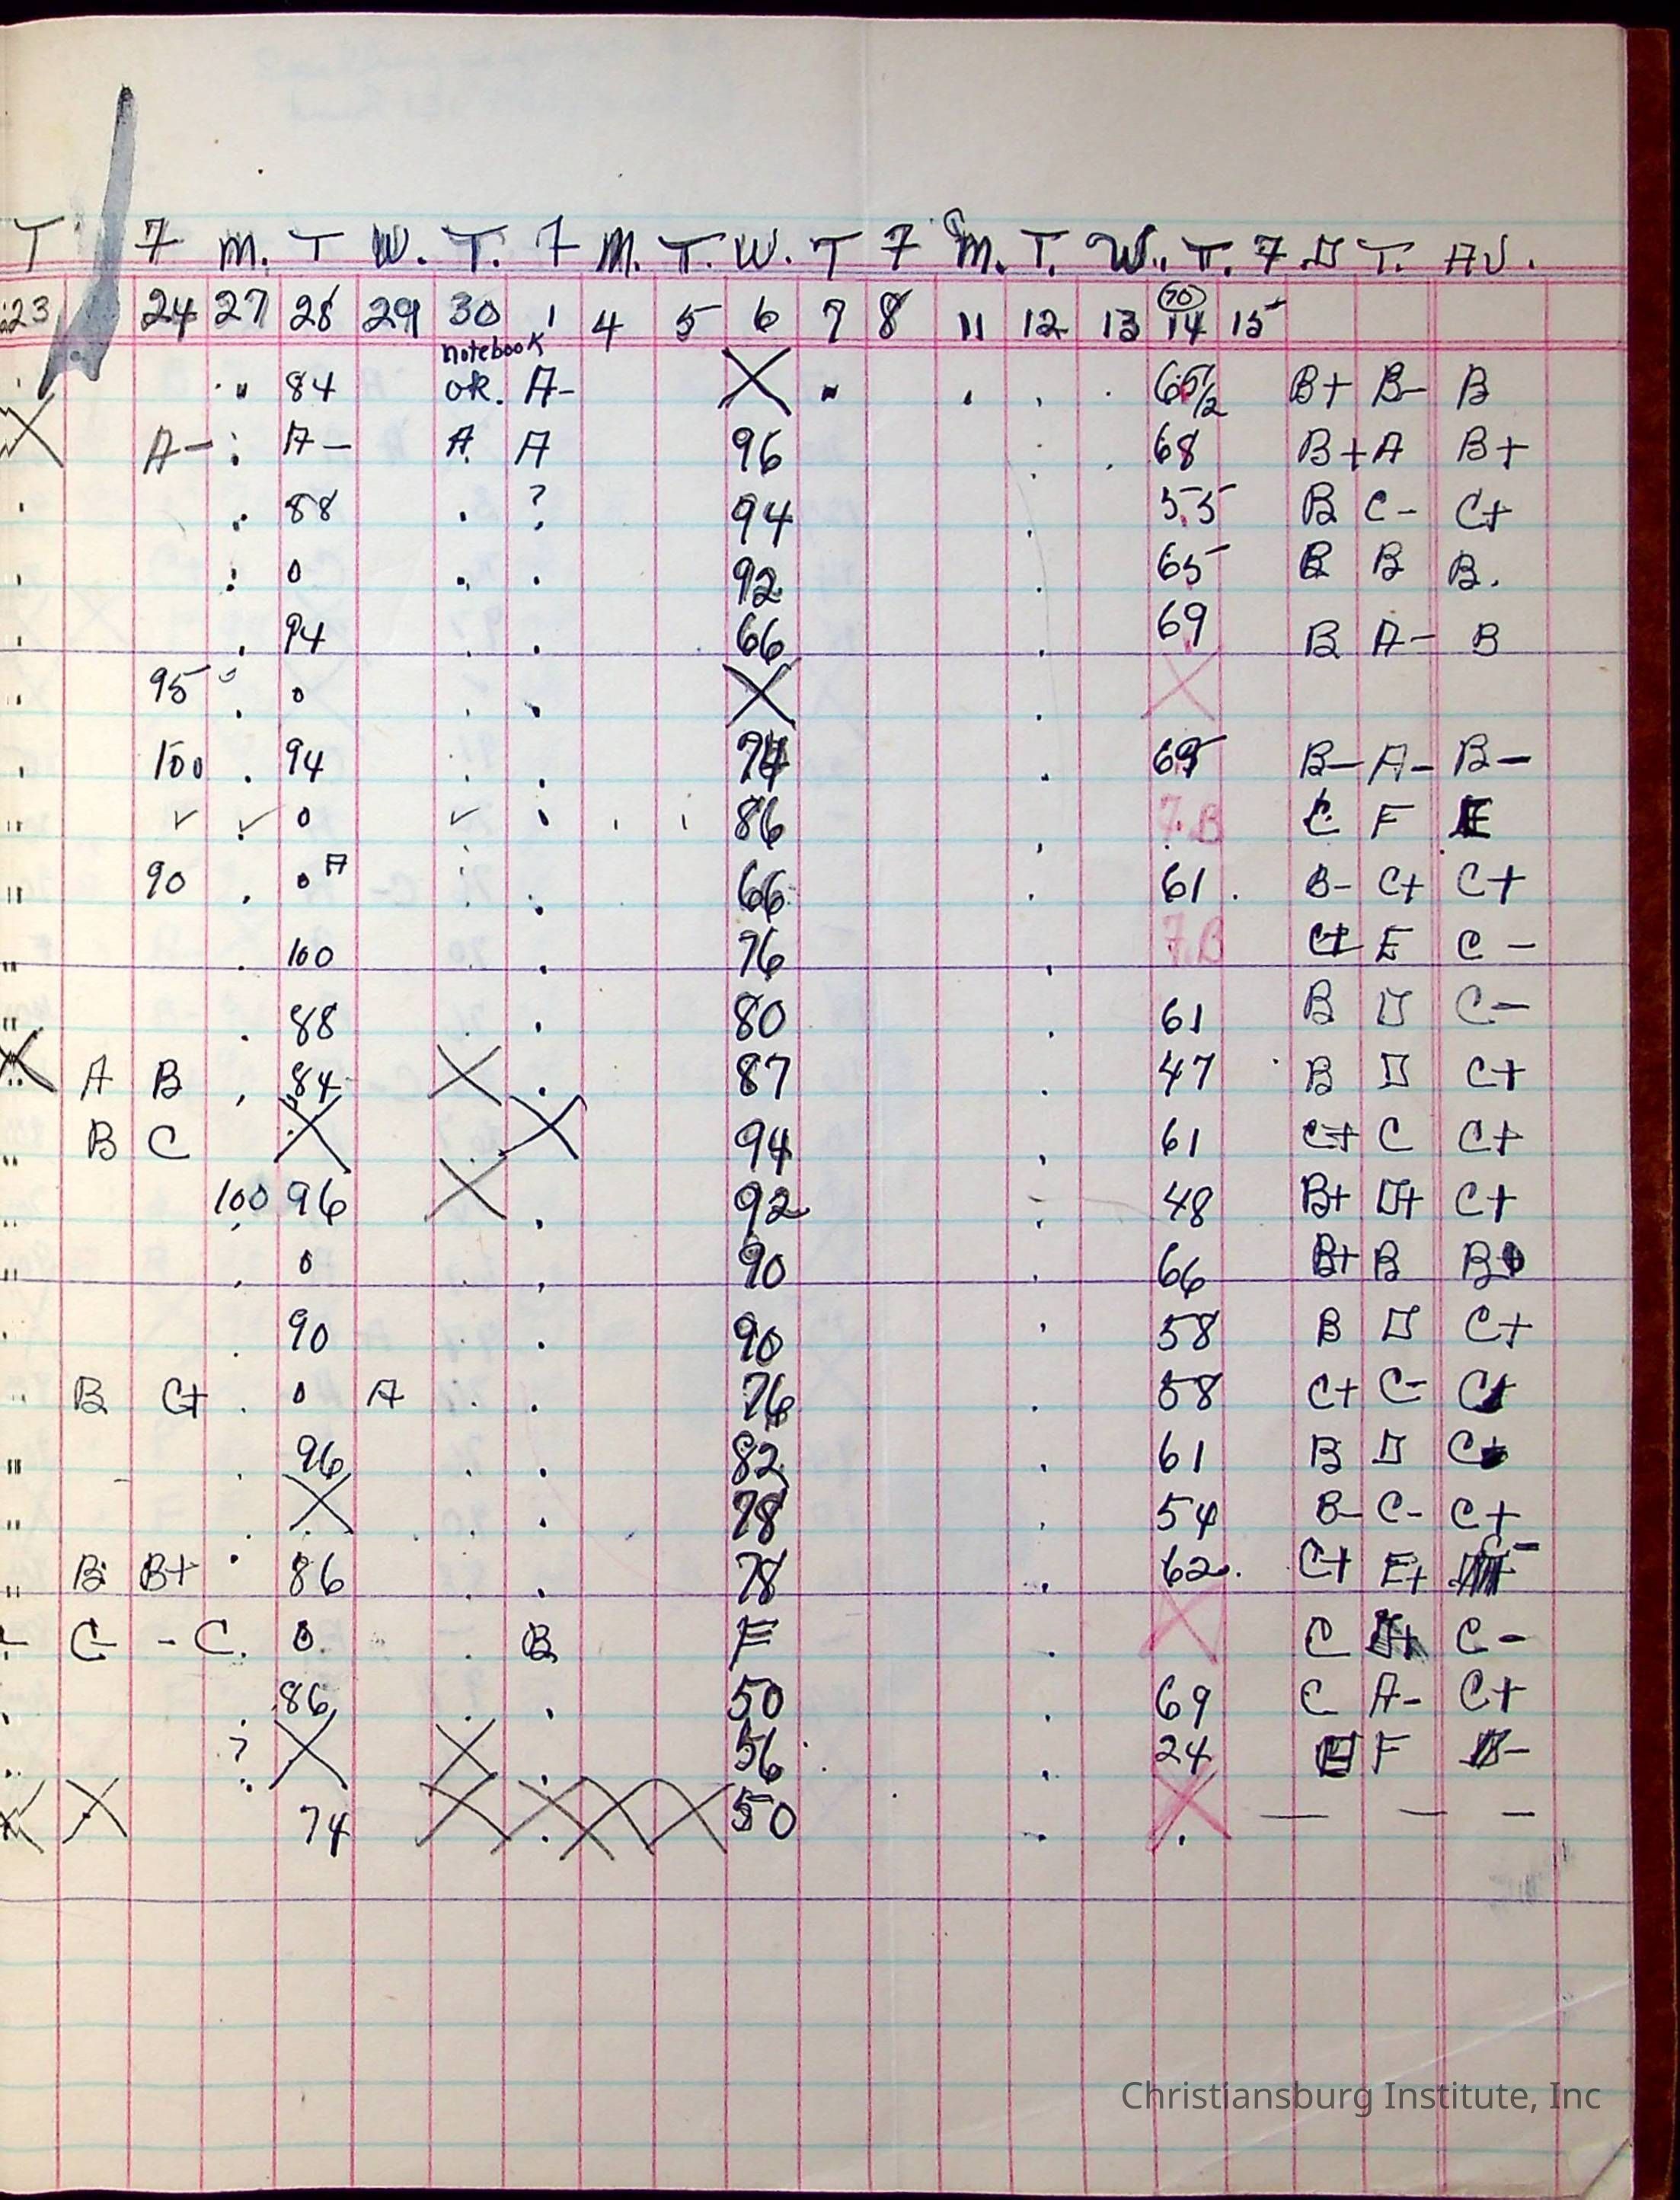 T. F M. T W. T. F M. T. W. T F M. T. W. T. F D T. AV.
23 24 27 28 29 30 1 4 5 6 7 8 11 12 13 (70) 14 15
notebook
84 OK. A- X 65 1/2 B+ B- B
X A- A- A A 96 68 B+ A B+
88 ? 94 55 B C- C+
0 92 65 B B B.
94 66 69 B A- B
95 0 X X
100 94 74 B- A- B-
✓ ✓ 0 ✓ 86 7.B C F E
90 0 A 66 61 B- C+ C+
100 76 7.B C+ E C-
88 80 61 B D C-
X A B 84 X 87 47 B D C+
B C X X 94 61 C+ C C+
100 96 X 92 48 B+ D+ C+
0 90 66 B+ B B
90 90 58 B D C+
B C+ 0 A 76 58 C+ C- C
96 82 61 B D C
X 78 54 B- C- C+
B B+ 86 78 62. C+ E+ C-
C - C. 0. B F X C C-
86 50 69 C A- C+
? X X 56 24 F
X X 74 X X X X 50 X — — —
Christiansburg Institute, Inc